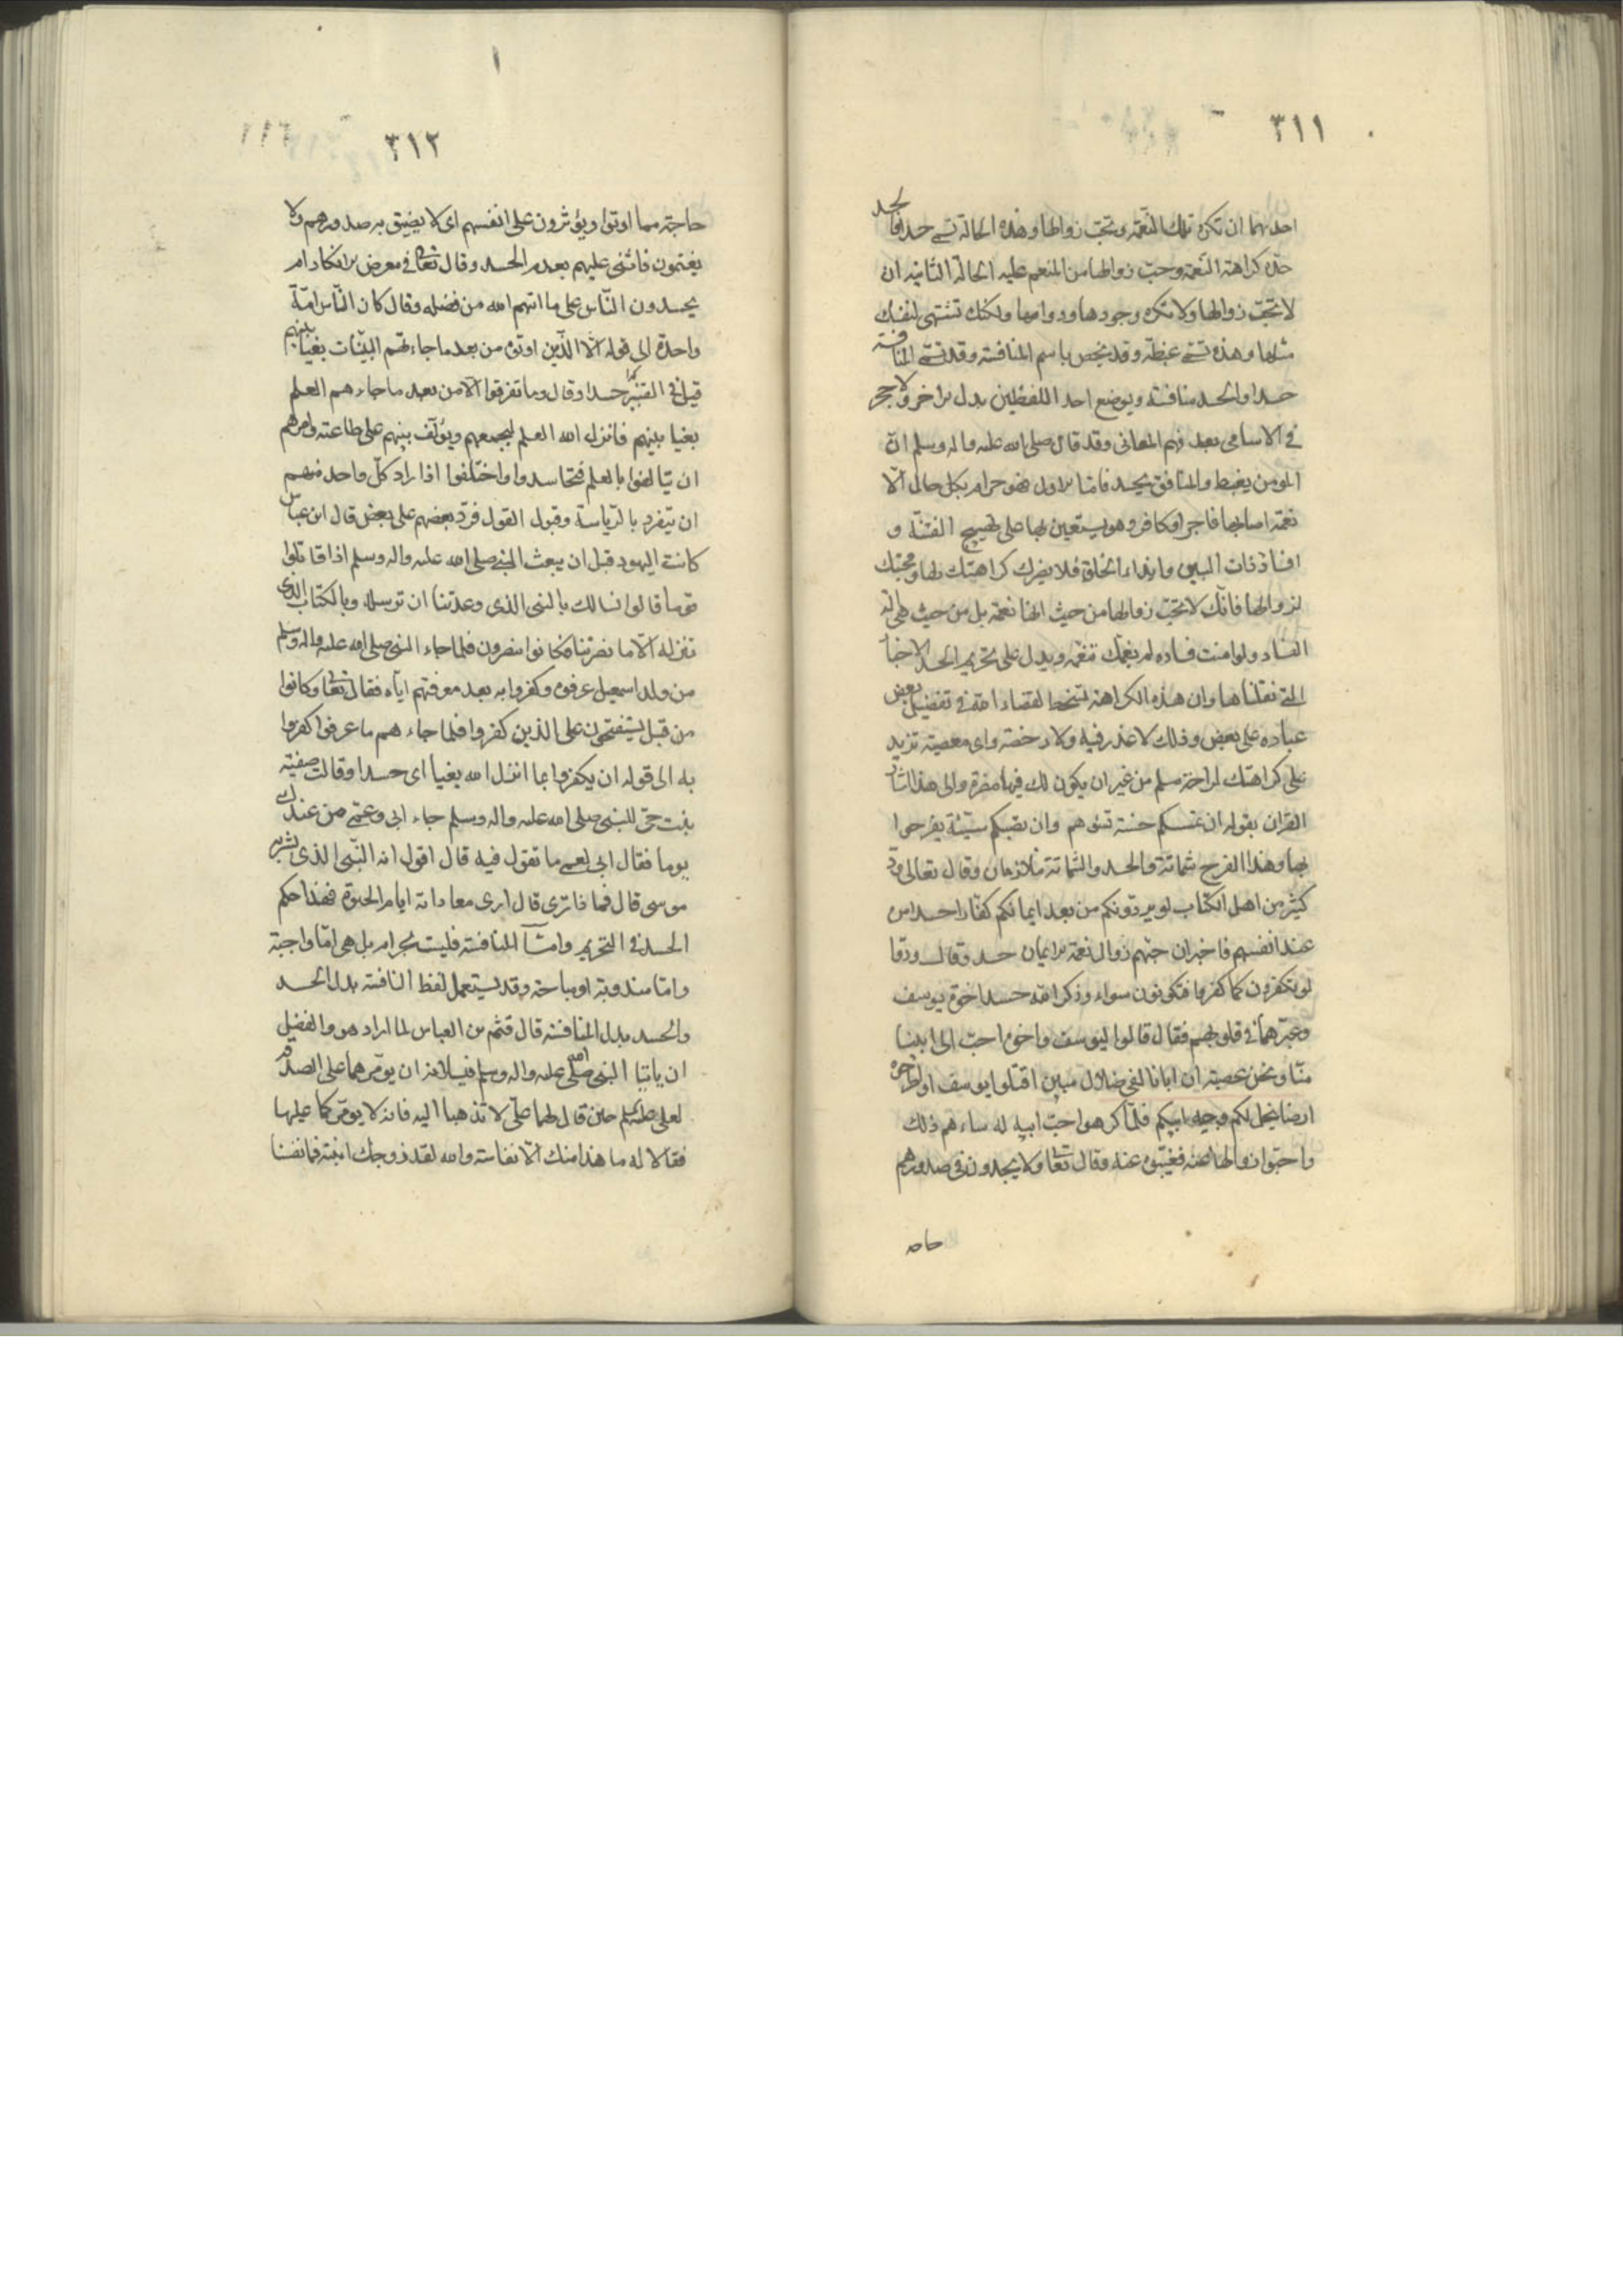 ٣١١
احديهما ان تكره تلك النّعمة وتحبّ زوالها وهذه الحالة تسمى حسدا فالحسد
حدّه كراهة النّعمة وحبّ زوالها من المنعم عليه الحالة الثانية ان
لا تحبّ زوالها ولا تكره وجودها ودوامها ولكنك تشتهى لنفسك
مثلها وهذه تسمى غبطة وقد يخص باسم المنافسة وقد تسمى المنافسة
حسدا والحسد منافسة ويوضع احد اللفظين بدل الاخر ولا حجر
فى الاسامى بعد فهم المعانى وقد قال صلى الله عليه واله وسلم ان
المومن يغبط والمنافق يحسد فامّا الاول فهو حرام بكل حال الّا
نعمة اصابها فاجر او كافر وهو يستعين بها على تهييج الفتنة و
افساد ذات البين وايذاء الخلق فلا يضرك كراهتك لها ومحبتك
لزوالها فانّك لا تحبّ زوالها من حيث انها نعمة بل من حيث هى الة
الفساد ولو امنت فساده لم يغمّك تنعّمه ويدل على تحريم الحسد الاخبار
التى نقلناها وان هذه الكراهة تسخط لقضاء الله فى تفضيل بعض
عباده على بعض وذلك لا عذر فيه ولا رخصة واى معصية تزيد
على كراهتك لراحة مسلم من غير ان يكون لك فيها مضرة والى هذا اشار
القران بقوله ان تمسسكم حسنة تسؤهم وان تصبكم سيّئة يفرحوا
بها وهذا الفرح شماتة والحسد والشماتة متلازمان وقال تعالى ودّ
كثير من اهل الكتاب لو يردّونكم من بعد ايمانكم كفّارا حسدا من
عند انفسهم فاخبر ان حبّهم زوال نعمة الايمان حسد وقال ودّوا
لو تكفرون كما كفروا فتكونون سواء وذكر الله حسد اخوة يوسف
وعبّر عمّا فى قلوبهم فقال قالوا ليوسف واخوه احبّ الى ابينا
منّا ونحن عصبة ان ابانا لفى ضلال مبين اقتلوا يوسف او اطرحوه
ارضا يخل لكم وجه ابيكم فلمّا كرهوا حبّ ابيه له ساءهم ذلك
واحبّوا زوالها عنه فغيّبوه عنه وقال تعا ولا يجدون فى صدورهم
حاجة
٣١٢
حاجة مما اوتوا ويؤثرون على انفسهم اى لا يضيق به صدورهم ولا
يغتمون فاثنى عليهم بعدم الحسد وقال تعا فى معرض الانكار ام
يحسدون النّاس على ما اتيهم الله من فضله وقال كان النّاس امّة
واحدة الى قوله الّا الّذين اوتوه من بعد ما جاءتهم البيّنات بغيا بينهم
قيل فى التفسير حسدا وقال وما تفرقوا الّا من بعد ما جاءهم العلم
بغيا بينهم فانزل الله العلم ليجمعهم ويؤلّف بينهم على طاعته وامرهم
ان يتالفوا بالعلم فتحاسدوا واختلفوا اذ اراد كلّ واحد منهم
ان يتفرد بالرّياسة وقبول القول فردّ بعضهم على بعض قال ابن عباس
كانت اليهود قبل ان يبعث النبى صلى الله عليه واله وسلم اذا قاتلوا
قوما قالوا نسالك بالنبى الذى وعدتنا ان ترسله وبالكتاب الذى
تنزله الّا ما نصرتنا فكانوا ينصرون فلما جاء النبى صلى الله عليه واله وسلم
من ولد اسمعيل عرفوه وكفروا به بعد معرفتهم ايّاه فقال تعا وكانوا
من قبل يستفتحون على الذين كفروا فلما جاءهم ما عرفوا كفروا
به الى قوله ان يكفروا بما انزل الله بغيا اى حسدا وقالت صفيّة
بنت حىّ للنبى صلى الله عليه واله وسلم جاء ابى وعمّى من عندك
يوما فقال ابى لعمى ما تقول فيه قال اقول انه النّبى الذى بشر به
موسى قال فما ذا ترى قال ارى معاداته ايام الحيوة فهذا حكم
الحسد فى التحريم وامّا المنافسة فليست بحرام بل هى امّا واجبة
وامّا مندوبة او مباحة وقد يستعمل لفظ المنافسة بدل الحسد
والحسد بدل المنافسة قال قثم بن العباس لما اراد هو والفضل
ان ياتيا النبى صلى الله عليه واله وسلم فيسالانه ان يؤمّرهما على الصدقة
لعلى حين قال لهما علىّ لا تذهبا اليه فانه لا يؤمّركما عليها
فقالا له ما هذا منك الّا نفاسة والله لقد زوجك ابنته فما نفسنا